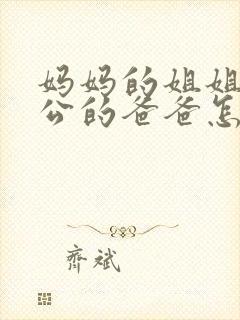 妈妈的姐姐
公的爸爸怎
齐斌